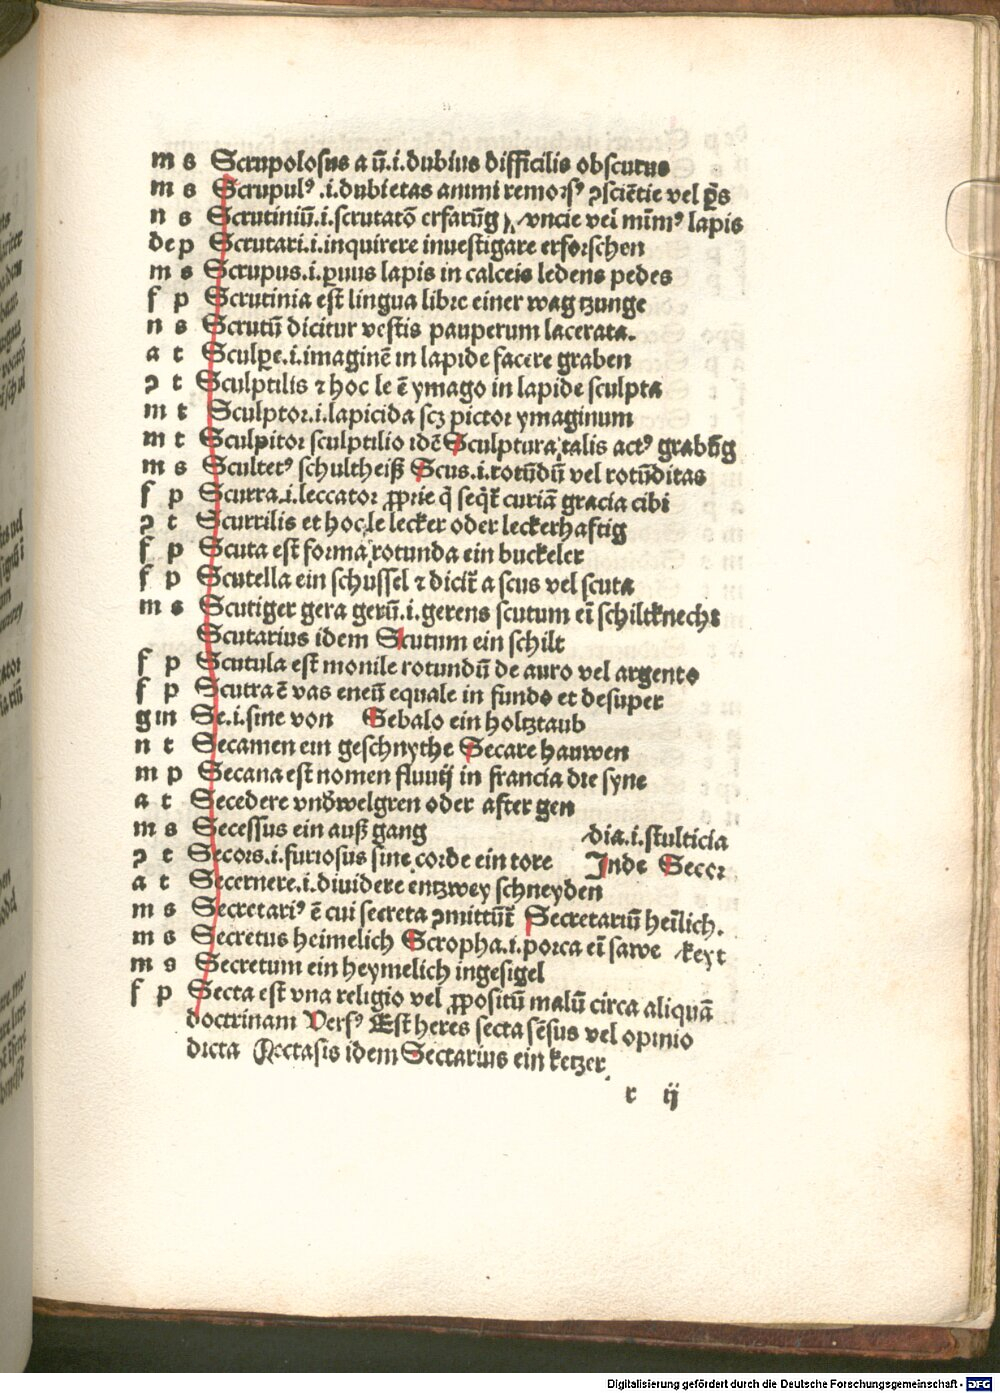 m s Scrupolosus a ū.i.dubius difficilis obscurus
m s Scrupulꝰ .i.dubietas animi remorsꝰ ꝯsciētie vel p̄s
n s Scrutiniū.i.scrutatō erfarūg vncie vel mīmꝰ lapis
de p Scrutari.i.inquirere inuestigare erforschen
m s Scrupus.i.ꝑuus lapis in calceis ledens pedes
f p Scrutinia est lingua libre einer wag tzunge
n s Scrutū dicitur vestis pauperum lacerata.
a t Sculpe.i.imaginē in lapide facere graben
ꝯ t Sculptilis ⁊ hoc le ē ymago in lapide sculpta
m t Sculptor.i.lapicida scꝫ pictor ymaginum
m t Sculpitor sculptilio idē Sculptura talis actꝰ grabūg
m s Scultetꝰ schultheiß Scus.i.rotūdū vel rotūditas
f p Scurra.i.leccator ꝓprie q̄ seqt̄ curiā gracia cibi
ꝯ t Scurrilis et hoc le lecker oder leckerhaftig
f p Scuta est forma rotunda ein buckeler
f p Scutella ein schussel ⁊ dicit̄ a scus vel scuta
m s Scutiger gera gerū.i.gerens scutum eī schiltknecht
Scutarius idem Scutum ein schilt
f p Scutula est monile rotundū de auro vel argento
f p Scutra ē vas eneū equale in fundo et desuper
g m Se.i.sine von Sebalo ein holtztaub
n t Secamen ein geschnythe Secare hauwen
m p Secana est nomen fluuij in francia die syne
a t Secedere vnd̄welgren oder after gen
m s Secessus ein auß gang dia.i.stulticia
ꝯ t Secors.i.furiosus sine corde ein tore Inde Secor
a t Secernere.i.diuidere entzwey schneyden
m s Secretariꝰ ē cui secreta ꝯmittūt̄ Secretariū heīlich.
m s Secretus heimelich Scropha.i.porca eī sawe keyt
m s Secretum ein heymelich ingesigel
f p Secta est vna religio vel ꝓpositū malū circa aliquā
doctrinam Versꝰ Est heres secta sēsus vel opinio
dicta Nectasis idem Sectarius ein ketzer
r ij
Digitalisierung gefördert durch die Deutsche Forschungsgemeinschaft - DFG